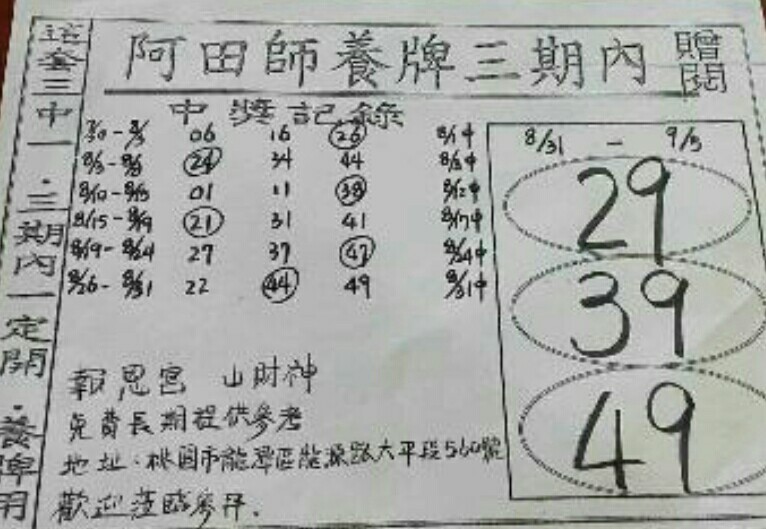 這套三中一．三期內一定開．養牌用
阿田師養牌三期內
贈閱
中獎記錄
7/30-8/3 06 16 26 8/1中
8/3-8/8 24 34 44 8/8中
8/10-8/15 01 11 38 8/12中
8/15-8/19 21 31 41 8/17中
8/19-8/24 27 37 47 8/24中
8/26-8/31 22 44 49 8/31中
8/31 - 9/5
29
39
49
報恩宮 山財神
免費長期提供參考
地址.桃園市龍潭區龍源路大平段560號
歡迎蒞臨參拜.